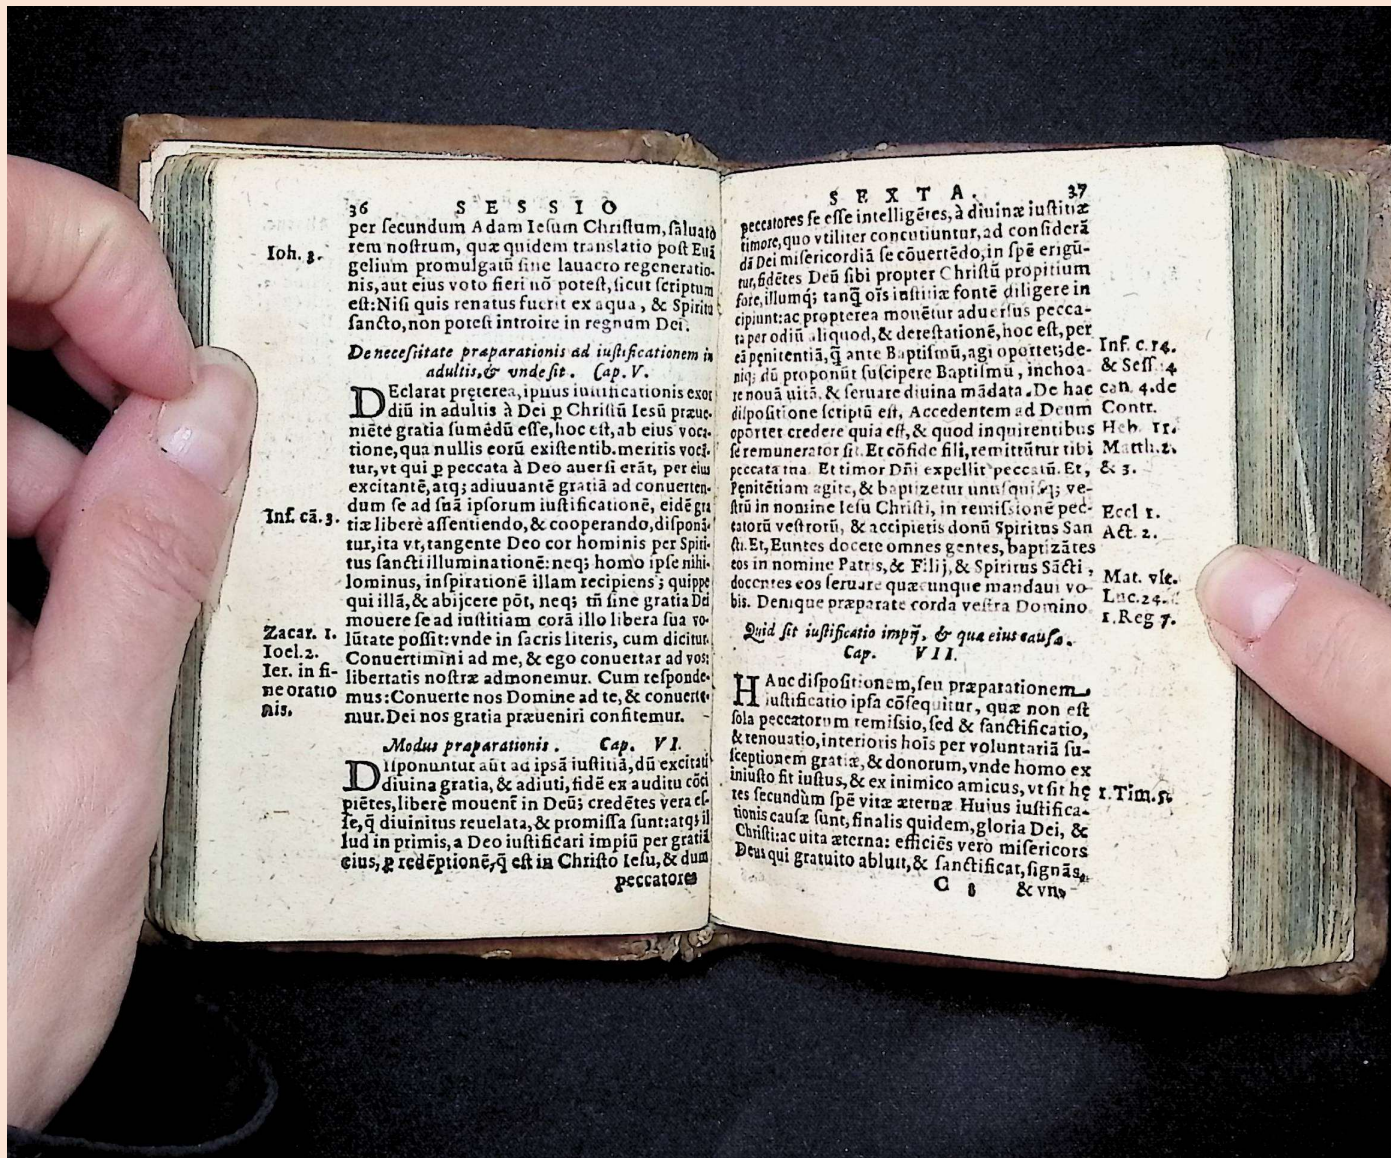 36 SESSIO
per secundum Adam Iesum Christum, saluato
Ioh. 3.
rem nostrum, quæ quidem translatio post Euā
gelium promulgatū sine lauacro regeneratio-
nis, aut eius voto fieri nō potest, sicut scriptum
est: Nisi quis renatus fuerit ex aqua, & Spiritu
sancto, non potest introire in regnum Dei.
De necessitate præparationis ad iustificationem in
adultis, & vnde sit. Cap. V.
DEclarat pręterea, ipsius iustificationis exor
diū in adultis à Dei ꝑ Christū Iesū præue-
niēte gratia sumēdū esse, hoc est, ab eius voca-
tione, qua nullis eorū existentib. meritis vocā-
tur, vt qui ꝑ peccata à Deo auersi erāt, per eius
excitantē, atq; adiuuantē gratiā ad conuerten-
dum se ad suā ipsorum iustificationē, eidē gra
Inf. cā. 3.
tiæ liberè assentiendo, & cooperando, disponā-
tur, ita vt, tangente Deo cor hominis per Spiri-
tus sancti illuminationē: neq; homo ipse nihi-
lominus, inspirationē illam recipiens; quippe
qui illā, & abijcere pōt, neq; tn̄ sine gratia Dei
mouere se ad iustitiam corā illo libera sua vo-
Zacar. 1.
lūtate possit: vnde in sacris literis, cum dicitur.
Ioel. 2.
Conuertimini ad me, & ego conuertar ad vos:
Ier. in fi-
libertatis nostræ admonemur. Cum responde-
ne oratio
mus: Conuerte nos Domine ad te, & conuerte-
nis.
mur. Dei nos gratia præueniri confitemur.
Modus præparationis. Cap. VI.
DIsponuntur aūt ad ipsā iustitiā, dū excitati
diuina gratia, & adiuti, fidē ex auditu cōci
piētes, liberè mouent̄ in Deū; credētes vera es-
se, q̄ diuinitus reuelata, & promissa sunt: atq; il
lud in primis, a Deo iustificari impiū per gratiā
eius, ꝑ redēptionē, q̄ est in Christo Iesu, & dum
peccatores
SEXTA. 37
peccatores se esse intelligētes, à diuinæ iustitiæ
timore, quo vtiliter concutiuntur, ad considerā
dā Dei misericordiā se cōuertēdo, in spē erigū-
tur, fidētes Deū sibi propter Christū propitium
fore, illumq; tanq̄ oīs iustitiæ fontē diligere in
cipiunt: ac propterea mouētur aduersus pecca-
ta per odiū aliquod, & detestationē, hoc est, per
eā penitentiā, q̄ ante Baptismū, agi oportet; de-
Inf. c. 14.
niq; dū proponūt suscipere Baptismū, inchoa-
& Sess. 4
re nouā uitā, & seruare diuina mādata. De hac
can. 4. de
dispositione scriptū est, Accedentem ad Deum
Contr.
oportet credere quia est, & quod inquirentibus
Heb. 11.
se remunerator sit. Et cōfide fili, remittūtur tibi
Matth. 2.
peccata tua. Et timor Dñi expellit peccatū. Et,
& 3.
Penitētiam agite, & baptizetur unusquisq; ve-
strū in nomine Iesu Christi, in remissionē pec-
Eccl 1.
catorū vestrorū, & accipietis donū Spiritus San
Act. 2.
cti. Et, Euntes docete omnes gentes, baptizātes
eos in nomine Patris, & Filij, & Spiritus Sācti,
Mat. vlt.
docentes eos seruare quæcunque mandaui vo-
Luc. 24.
bis. Denique præparate corda vestra Domino
1. Reg 7.
Quid sit iustificatio impij, & quæ eius causæ.
Cap. VII.
HAnc dispositionem, seu præparationem
iustificatio ipsa cōsequitur, quæ non est
sola peccatorum remissio, sed & sanctificatio,
& renouatio, interioris hoīs per voluntariā su-
sceptionem gratiæ, & donorum, vnde homo ex
iniusto fit iustus, & ex inimico amicus, vt sit hę
1. Tim. 5.
res secundùm spē vitæ æternæ. Huius iustifica-
tionis causæ sunt, finalis quidem, gloria Dei, &
Christi: ac uita æterna: efficiēs verò misericors
Deus qui gratuito abluit, & sanctificat, signās,
C & vn-